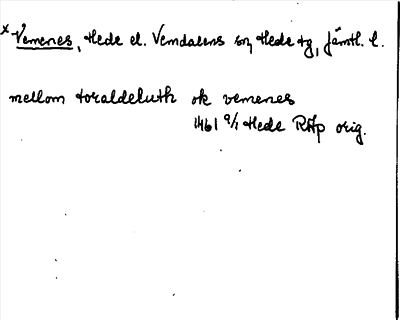 × Vemenes, Hede el. Vemdalens sn, Hede tg, Jämtl. l.
mellom toraldeluth ok vemenes
1461 9/1 Hede RAp orig.